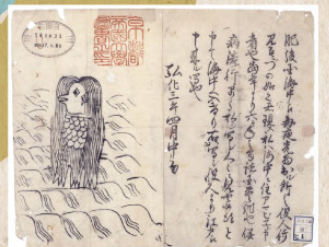 肥後国海中え毎夜光物出ル所之役人行
見るニづの如く者現ス私ハ海中ニ住アマビヱト申
者也當年より六ヶ年之間諸国豊作也併
病流行早々私シ写シ人々ニ見せ候得と
申て海中へ入けり右ハ写シ役人より江戸え
申来ル写也
弘化三年四月中旬